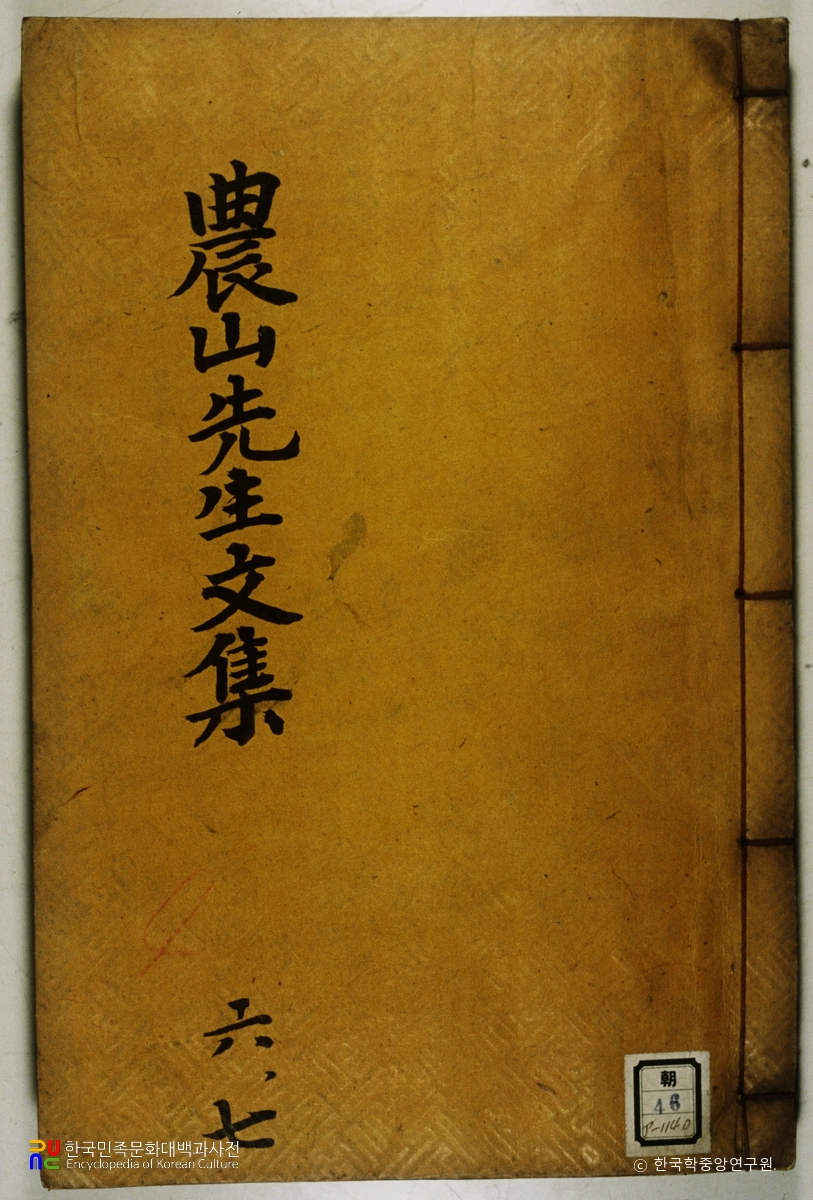 農山先生文集
六、七
朝
46
한국민족문화대백과사전
Encyclopedia of Korean Culture
© 한국학중앙연구원